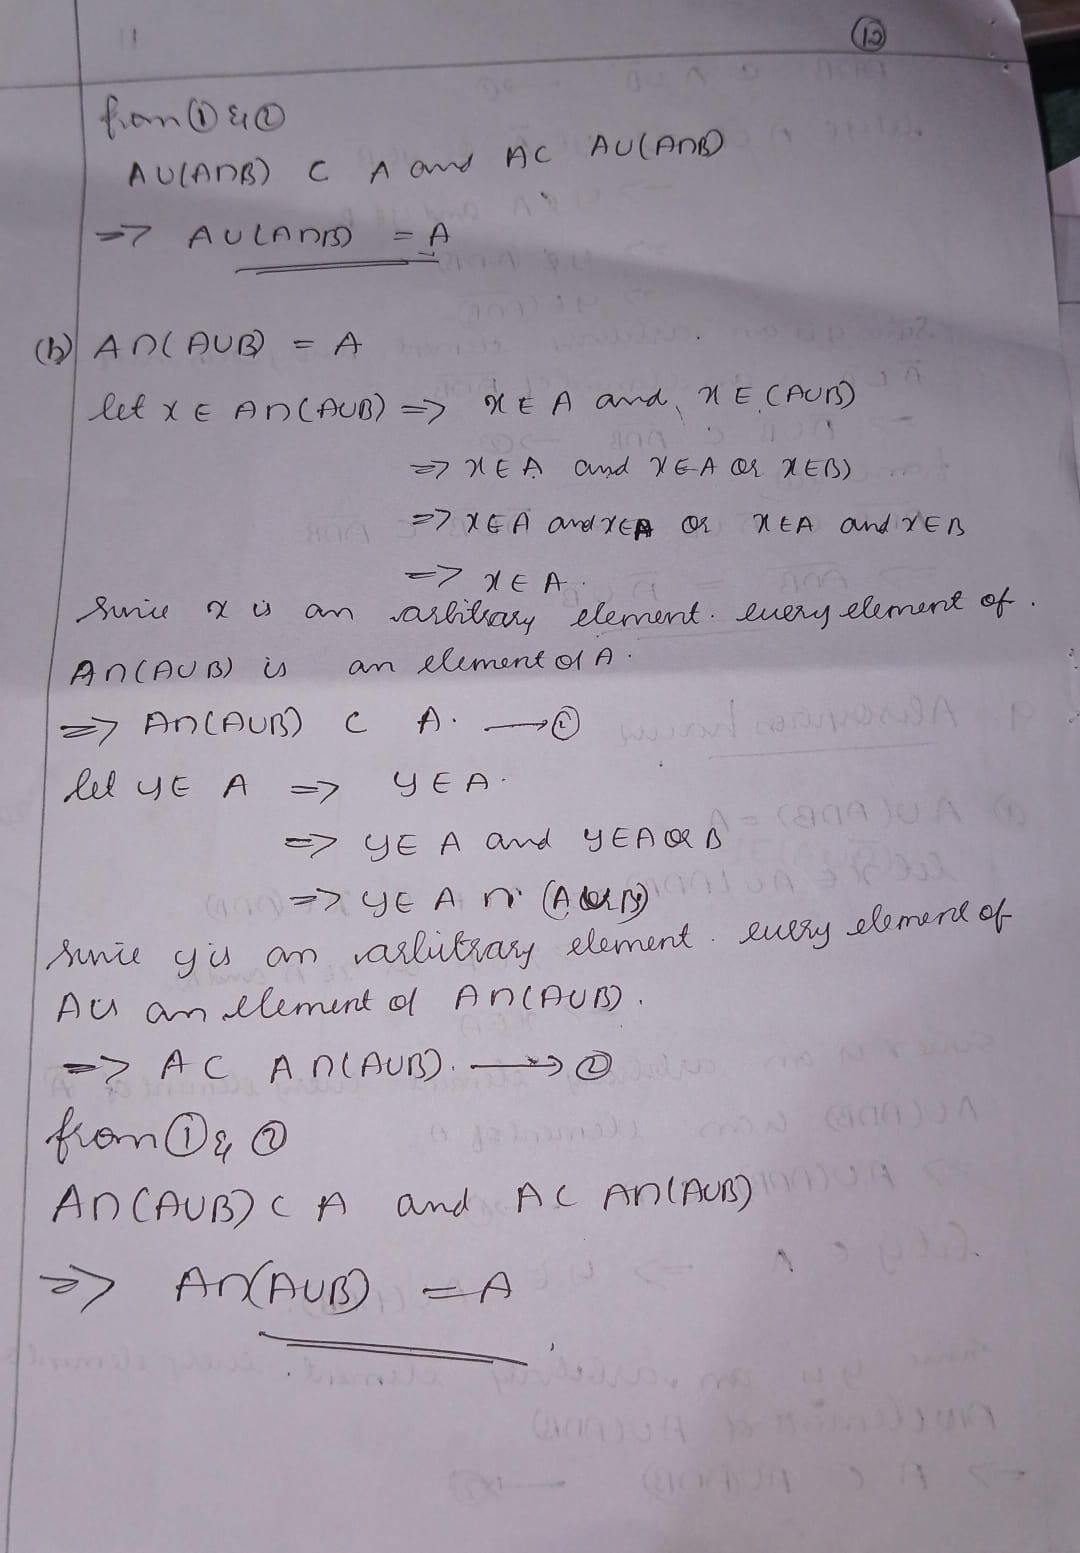 12
from ① & ②
A∪(A∩B) ⊂ A and A⊂ A∪(A∩B)
=> A∪(A∩B) = A
(b) A∩(A∪B) = A
let x ∈ A∩(A∪B) => x ∈ A and x ∈ (A∪B)
=> x ∈ A and x ∈ A or x ∈ B)
=> x ∈ A and x ∈ A or x ∈ A and x ∈ B
=> x ∈ A.
Since x is an arbitrary element. every element of.
A∩(A∪B) is an element of A.
=> A∩(A∪B) ⊂ A. → ①
let y ∈ A => y ∈ A.
=> y ∈ A and y ∈ A or B
=> y ∈ A ∩ (A or B)
Since y is an arbitrary element. every element of
A is an element of A∩(A∪B).
=> A ⊂ A∩(A∪B). → ②
from ① & ②
A∩(A∪B) ⊂ A and A ⊂ A∩(A∪B)
=> A∩(A∪B) = A